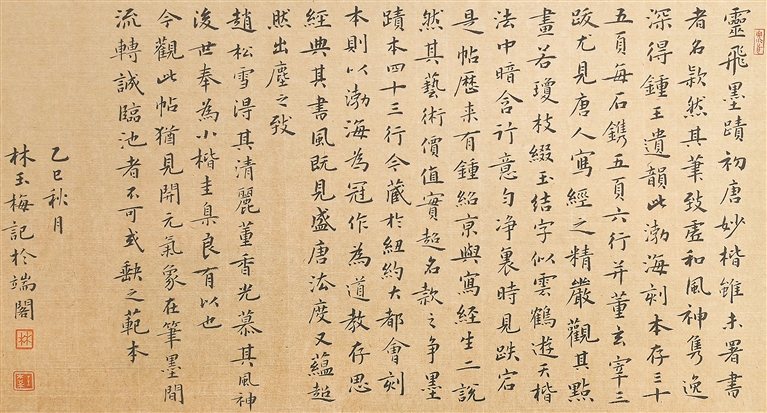 靈飛墨蹟初唐妙楷雖未署書
者名款然其筆致虛和風神隽逸
深得鍾王遺韻此渤海刻本存三十
五頁每石鐫五頁六行并董玄宰三
跋尤見唐人寫經之精嚴觀其點
畫若瓊枝綴玉結字似雲鶴遊天楷
法中暗含行意勻净裏時見跌宕
是帖歷来有鍾紹京與寫經生二說
然其藝術價值實超名款之争墨
蹟本四十三行今藏於紐約大都會刻
本則以渤海為冠作為道教存思
經典其書風既見盛唐法度又蘊超
然出塵之致
趙松雪得其清麗董香光慕其風神
後世奉為小楷圭臬良有以也
今觀此帖猶見開元氣象在筆墨間
流轉誠臨池者不可或缺之範本
乙巳秋月
林玉梅記於端閣
林